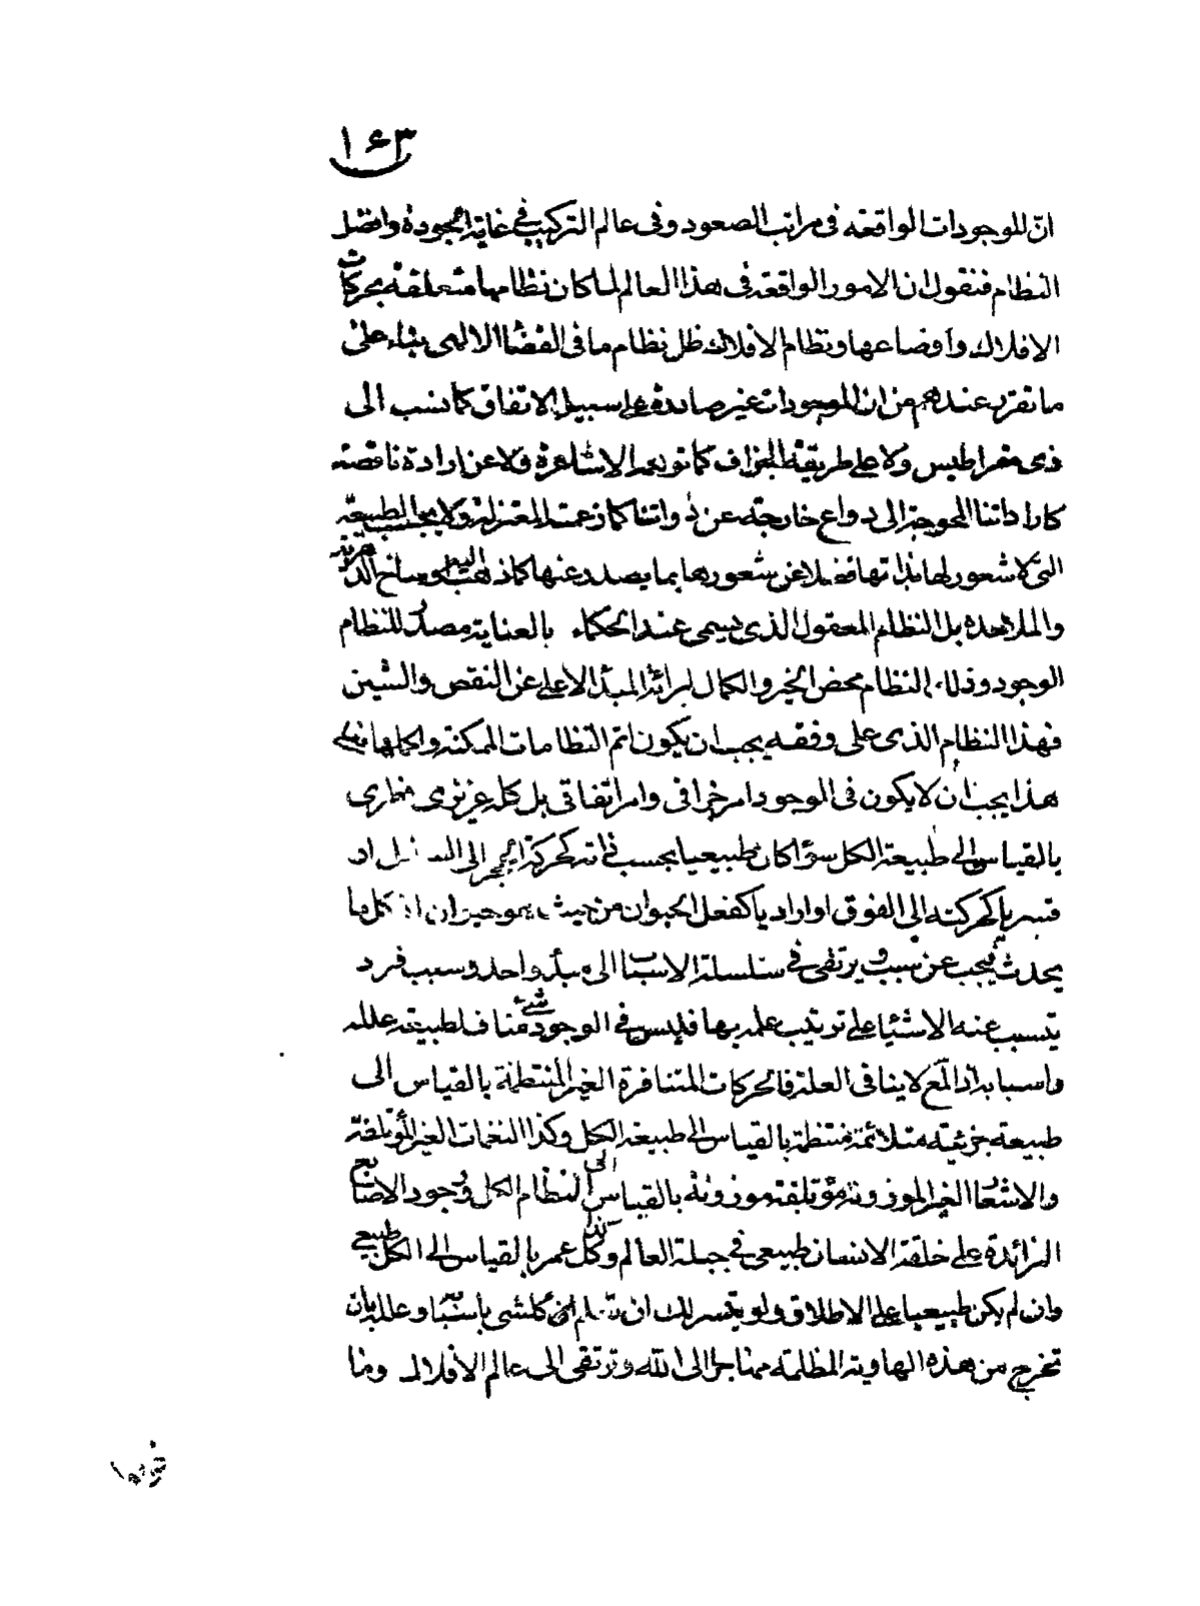 ١٦٣
انّ للموجودات الواقعة فى مراتب الصعود وفى عالم التركيب فى غاية الجودة وافضل
النظام فنقول ان الامور الواقعة فى هذا العالم لما كان نظامها متعلقة بحركات
الافلاك واوضاعها ونظام الافلاك ظل نظام ما فى القضا الالهى بناء على
ما تقرر عندهم من ان الموجودات غير صادرة على سبيل الاتفاق كما نسب الى
ذى مقراطيس ولا على طريقة الجزاف كما توهمه الاشاعرة ولا عن ارادة ناقصة
كارادتنا المحوجة الى دواع خارجة عن ذواتنا كما زعمت المعتزلة ولا بحسب الطبيعة
التى لا شعور لها بذاتها فضلا عن شعورها بما يصدر عنها كما ذهب اليه اوساخ الدهرية
والملاحدة بل النظام المعقول الذى يسمى عند الحكماء بالعناية مصدر للنظام
الموجود وذلك النظام محض الخير والكمال لبرائة المبدأ الاعلى عن النقص والشين
فهذا النظام الذى على وفقه يجب ان يكون اتم النظامات الممكنة واكملها فعلى
هذا يجب ان لا يكون فى الوجود امر جزافى وامر اتفاقى بل كله غريزى فطرى
بالقياس الى طبيعة الكل سواء كان طبيعيا بحسب ذاته كحركة الحجر الى السفل او
قسريا كحركته الى الفوق او اراديا كفعل الحيوان من حيث هو حيوان اذ كل ما
يحدث فيجب عن سبب ويرتقى فى سلسلة الاسباب الى مبدأ واحد وسبب فرد
يتسبب عنه الاشياء على ترتيب علمه بها فليس فى الوجود شىء مناف لطبيعة علله
واسبابه اذ المع لا ينافى العلة فالحركات المتنافرة الغير المنتظمة بالقياس الى
طبيعة جزئية متلائمة منتظمة بالقياس الى طبيعة الكل وكذا النغمات الغير المؤتلفة
والاشعار الغير الموزونة مؤتلفة موزونة بالقياس الى النظام الكل ووجود الاصابع
الزائدة على خلقة الانسان طبيعى فى جبلة العالم وكذا كل عمر بالقياس الى الكل طبيعى
وان لم يكن طبيعيا على الاطلاق ولو تيسر لك ان تعلم ان كل شى باسبابه وعلله بان
تخرج من هذه الهاوية المظلمة مهاجرا الى الله وترتقى الى عالم الافلاك وما